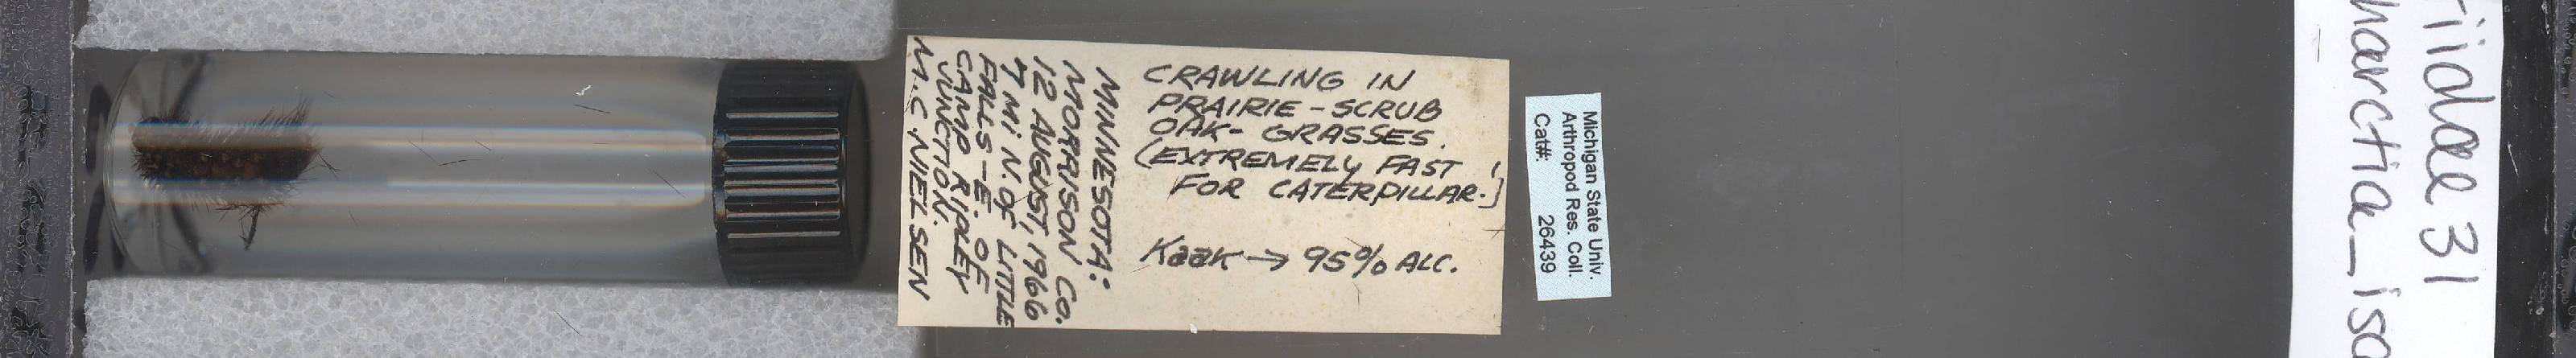 MINNESOTA:
MORRISON CO.
12 AUGUST, 1966
7 MI N. OF LITTLE
FALLS-E. OF
CAMP RIPLEY
JUNCTION.
M.C. NIELSEN
CRAWLING IN
PRAIRIE-SCRUB
OAK-GRASSES.
(EXTREMELY FAST
FOR CATERPILLAR!)
Kaak → 95% ALC.
Michigan State Univ.
Arthropod Res. Coll.
Cat#: 26439
tiidae 31
harctia_isa